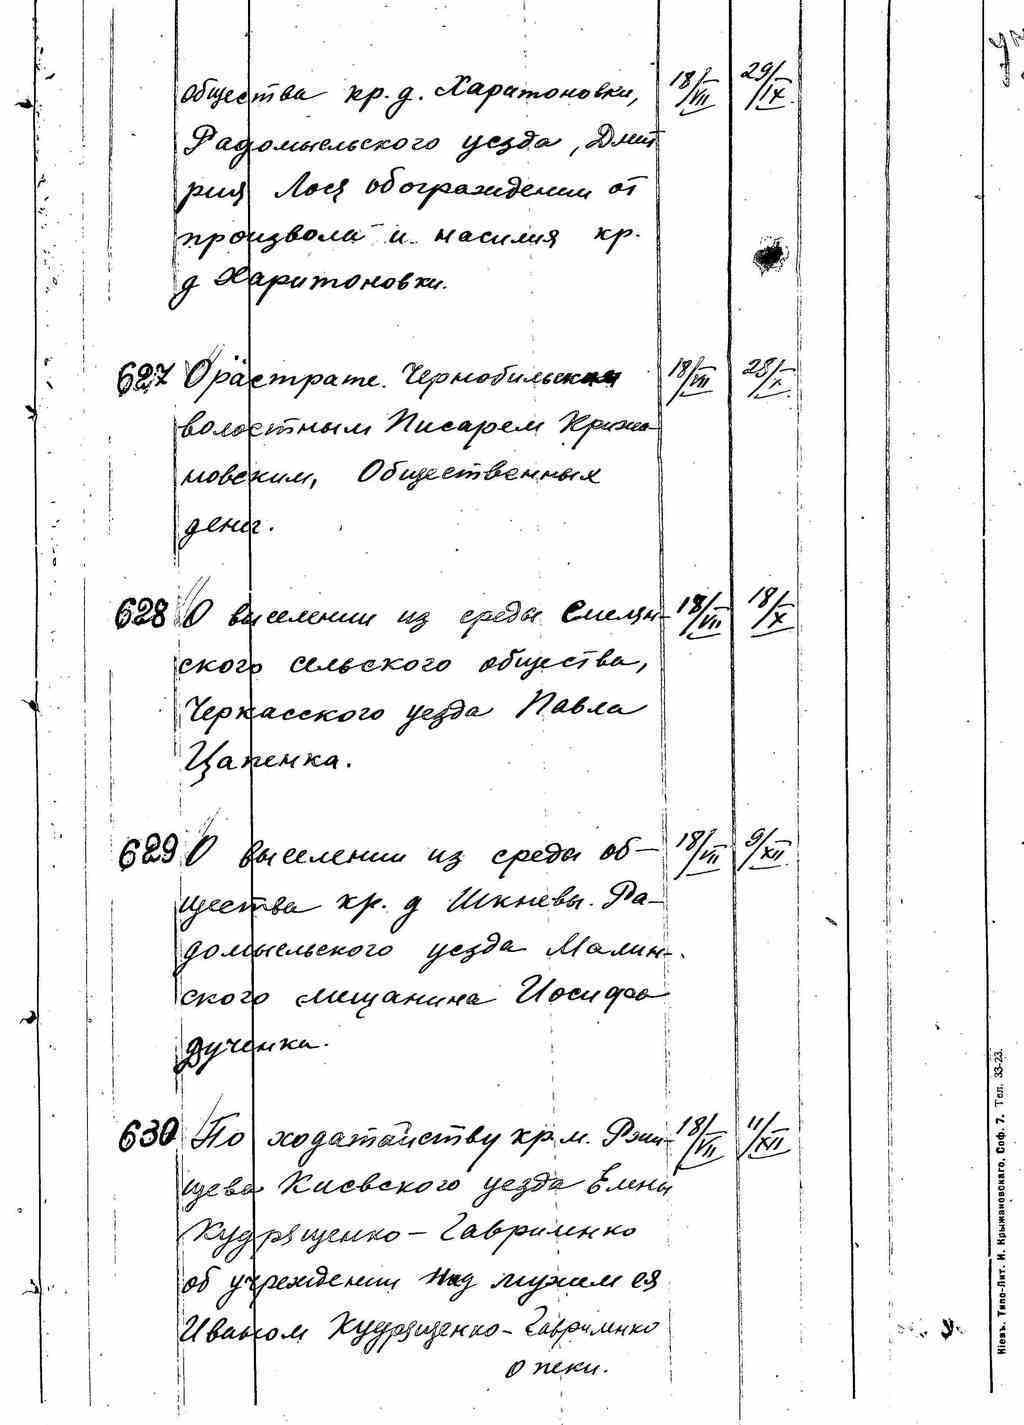 общества кр. д. Харитоновки, 18/VII 29/IX
Радомысльского уезда, Дмит
рия Лося об ограждении от
произвола и насилия кр.
д Харитоновки.
627 О растрате Чернобильским 18/VII 28/X
волостным Писарем Крижа-
новским, Общественных
денег.
628 О виселении из среды Смелян- 18/VII 18/X
ского сельского общества,
Черкасского уезда Павла
Цапенка.
629 О выселении из среды об- 18/VII 9/XII
щества кр. д Шкневы. Ра-
домысльского уезда Малин-
ского мещанина Иосифа
Дученка.
630 По ходатайству кр. м. Ржи- 18/VII 11/XII
щева Киевского уезда Елены
Кудрященко-Гавриленко
об учреждении над мужем ея
Иваном Кудрященко-Гавриленко
опеки.
Кіевъ. Типо-Лит. И. Крыжановскаго. Соф. 7. Тел. 33-23.